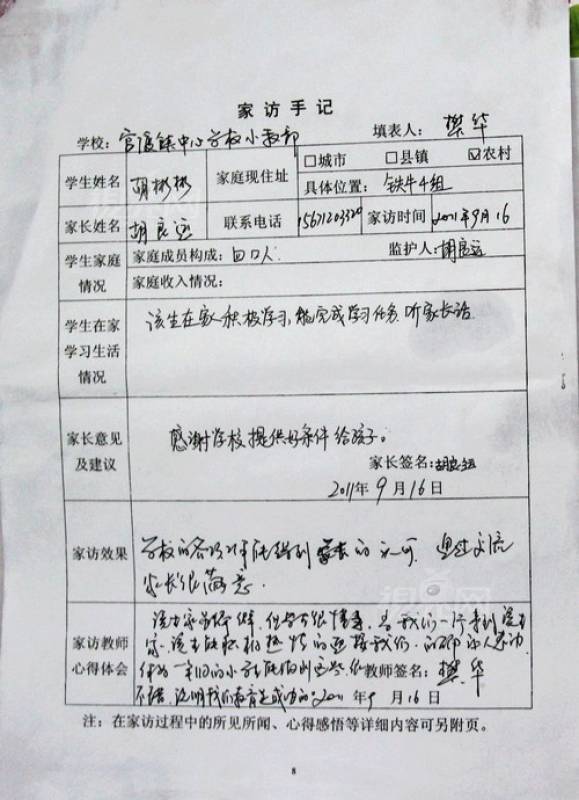 家访手记
学校：官渡镇中心学校小教部 填表人：樊华
学生姓名 胡彬彬 家庭现住址 □城市 □县镇 ☑农村
具体位置：铁牛4组
家长姓名 胡良远 联系电话 15671203320 家访时间 2011年9月16
学生家庭情况 家庭成员构成：四口人 监护人：胡良远
家庭收入情况：
学生在家
学习生活
情况
该生在家积极学习，能完成学习任务，听家长话
家长意见
及建议
感谢学校提供好条件给孩子。
家长签名：胡良远
2011年9月16日
家访效果
学校的各项工作能得到家长的认可，通过交流
家长很满意.
家访教师
心得体会
我们一行来到该生
家，该生能积极热情的迎接我们，
教师签名：樊华
不错，说明我们教育是成功的。2011年9月16日
注：在家访过程中的所见所闻、心得感悟等详细内容可另附页。
8